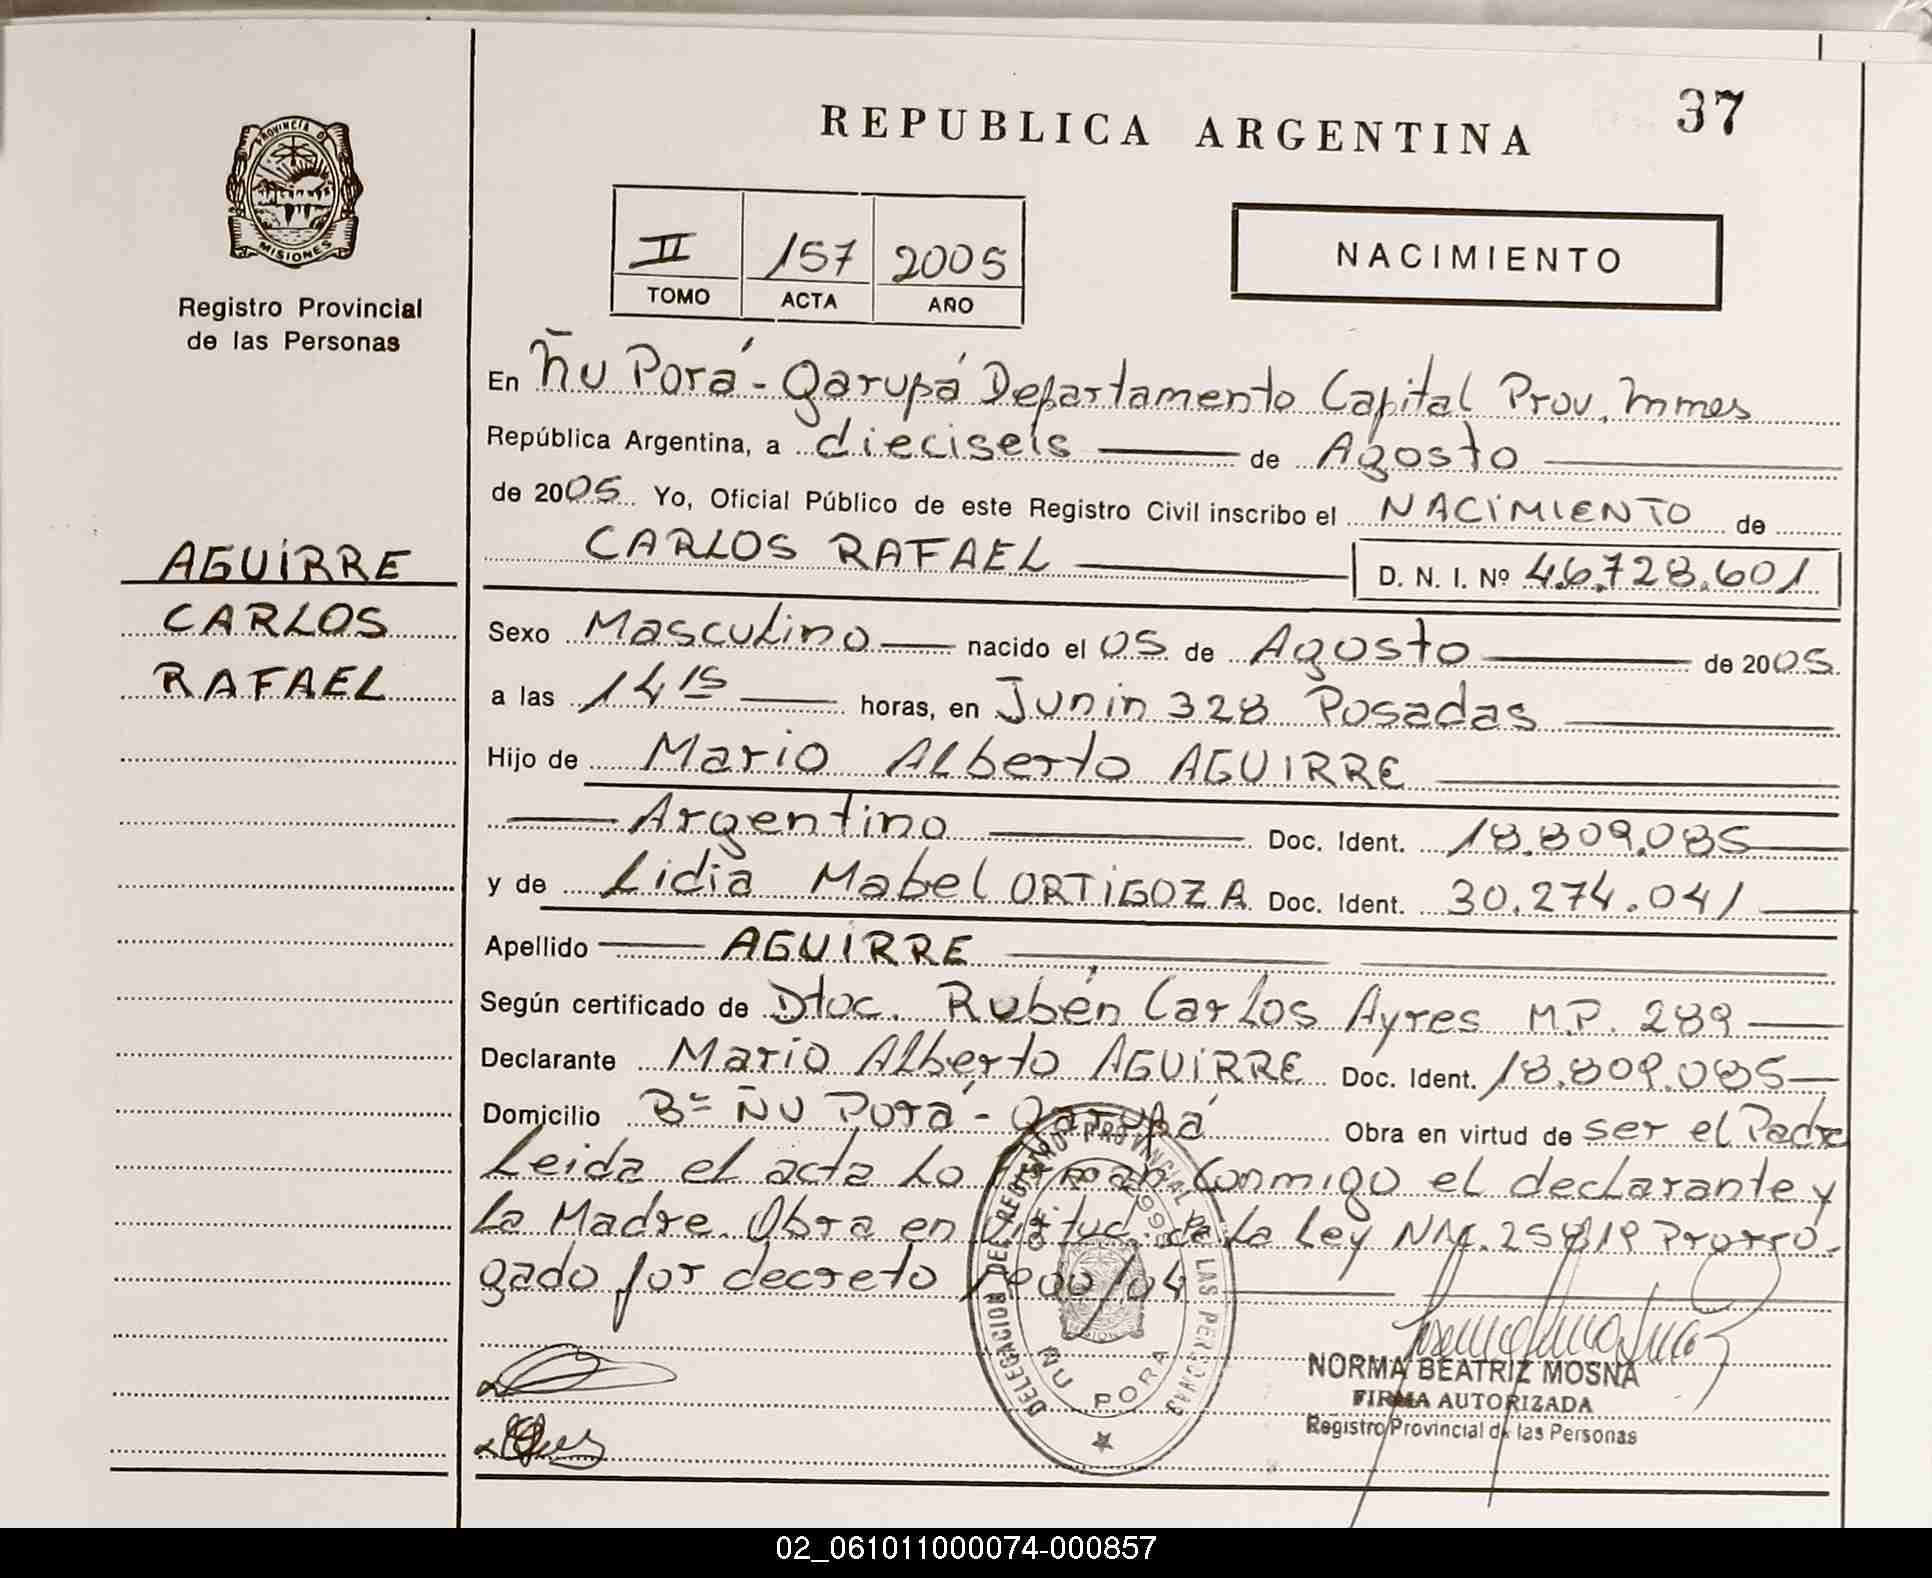 37
REPUBLICA ARGENTINA
PROVINCIA DE
MISIONES
Registro Provincial
de las Personas
II 157 2005
TOMO ACTA AÑO
NACIMIENTO
En Ñu Porá - Garupá Departamento Capital Prov. Mnes
República Argentina, a dieciseis de Agosto
de 2005 Yo, Oficial Público de este Registro Civil inscribo el NACIMIENTO de
CARLOS RAFAEL D. N. I. Nº 46.728.601
AGUIRRE
CARLOS
RAFAEL
Sexo Masculino nacido el 05 de Agosto de 2005
a las 14 15 horas, en Junin 328 Posadas
Hijo de Mario Alberto AGUIRRE
Argentino Doc. Ident. 18.809.085
y de Lidia Mabel ORTIGOZA Doc. Ident. 30.274.041
Apellido AGUIRRE
Según certificado de Dtoc. Rubén Carlos Ayres M.P. 289
Declarante Mario Alberto AGUIRRE Doc. Ident. 18.809.085
Domicilio Bº Ñu Porá - Garupá Obra en virtud de ser el Padre
Leida el acta lo firman conmigo el declarante y
la Madre. Obra en virtud de la Ley 25819 Prorro-
gado por decreto 1900/04
DELEGACION DEL REGISTRO PROVINCIAL DE LAS PERSONAS
ÑU PORA
NORMA BEATRIZ MOSNA
FIRMA AUTORIZADA
Registro Provincial de las Personas
02_061011000074-000857